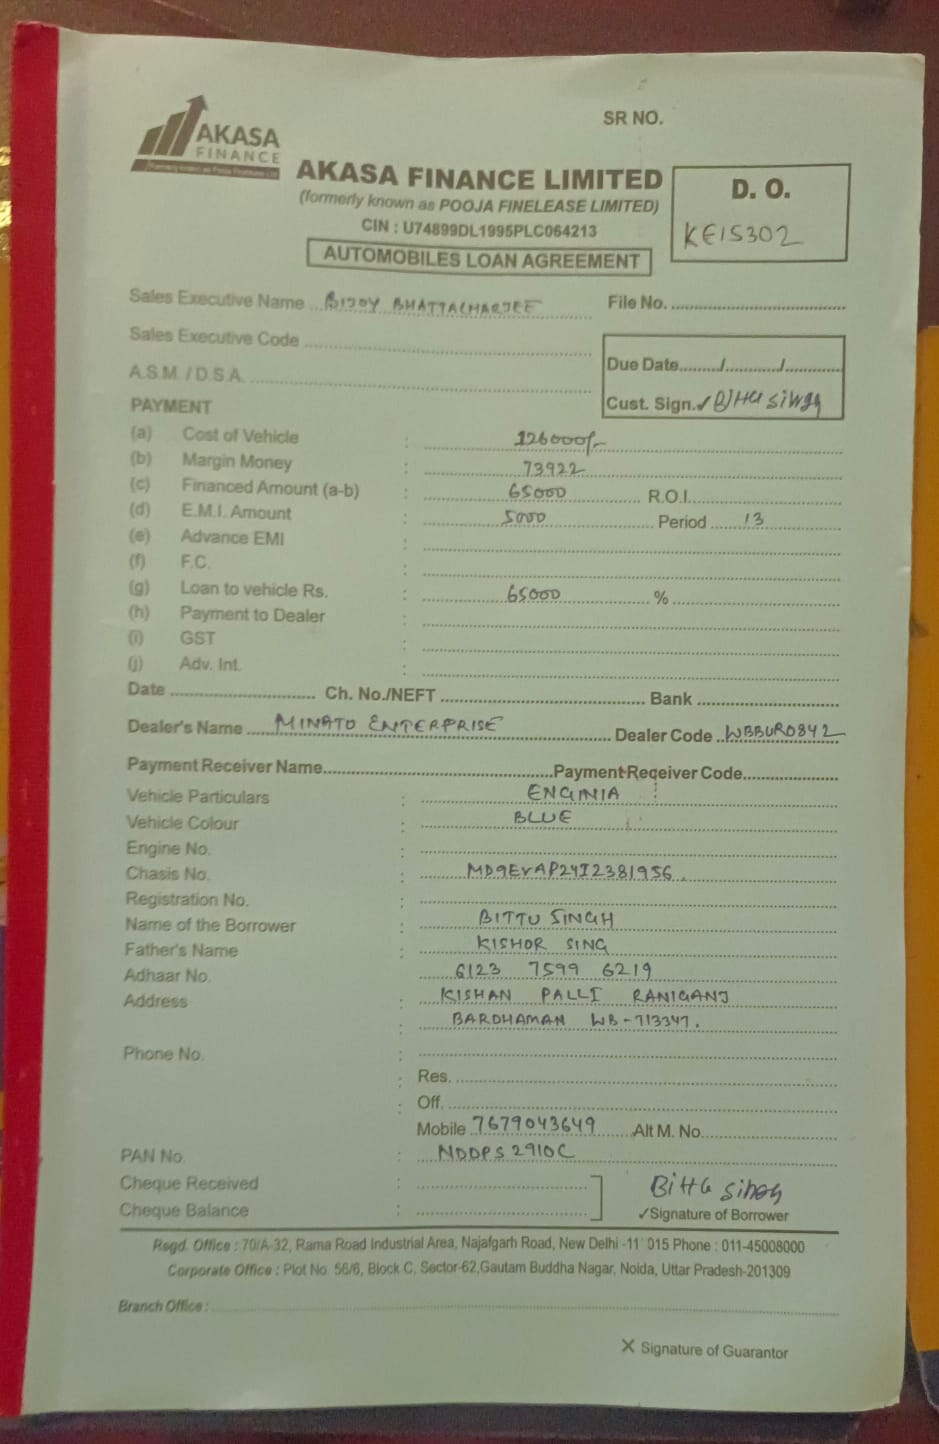 SR NO.
AKASA
FINANCE
AKASA FINANCE LIMITED
(formerly known as POOJA FINELEASE LIMITED)
CIN : U74899DL1995PLC064213
AUTOMOBILES LOAN AGREEMENT
D. O.
KE15302
Sales Executive Name ... BIJOY BHATTACHARJEE
File No.
Sales Executive Code
Due Date......./.........../...........
A.S.M. / D.S.A.
Cust. Sign. ✓ Bittu Singh
PAYMENT
(a) Cost of Vehicle : 126000/-
(b) Margin Money : 73922
(c) Financed Amount (a-b) : 65000 R.O.I.
(d) E.M.I. Amount : 5000 Period 13
(e) Advance EMI :
(f) F.C. :
(g) Loan to vehicle Rs. : 65000 %
(h) Payment to Dealer :
(i) GST :
(j) Adv. Int. :
Date ............ Ch. No./NEFT ............ Bank ............
Dealer's Name ..... MINATO ENTERPRISE ..... Dealer Code .. WBBUR0842
Payment Receiver Name............ Payment Receiver Code............
Vehicle Particulars : ENGINIA
Vehicle Colour : BLUE
Engine No. :
Chasis No. : MD9EVAP24I2381956.
Registration No. :
Name of the Borrower : BITTU SINGH
Father's Name : KISHOR SING
Adhaar No. 6123 7599 6219
Address : KISHAN PALLI RANIGANJ
: BARDHAMAN WB-713347.
Phone No. :
: Res.
: Off.
Mobile 7679043649 Alt M. No.
PAN No. : NDDPS2910C
Cheque Received :
Bittu Singh
Cheque Balance :
✓Signature of Borrower
Regd. Office : 70/A-32, Rama Road Industrial Area, Najafgarh Road, New Delhi -11 015 Phone : 011-45008000
Corporate Office : Plot No. 56/6, Block C, Sector-62,Gautam Buddha Nagar, Noida, Uttar Pradesh-201309
Branch Office :
X Signature of Guarantor